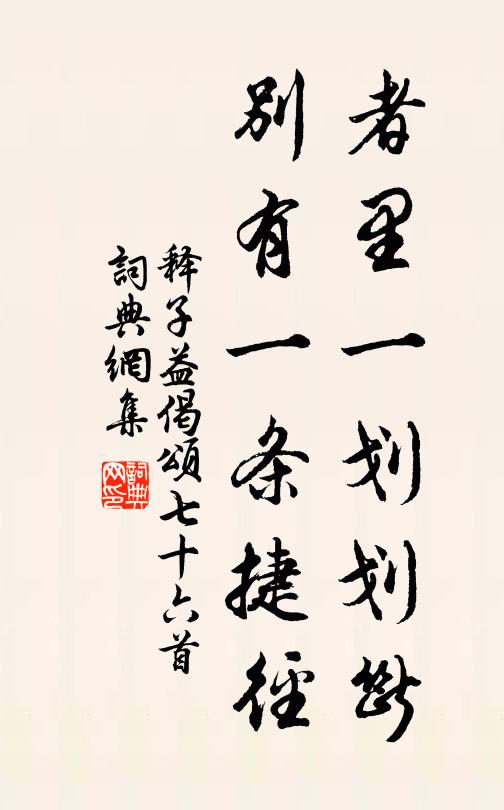 者里一划划断
别有一条捷径
释子益偈颂七十六首
詞典網集
詞典网印